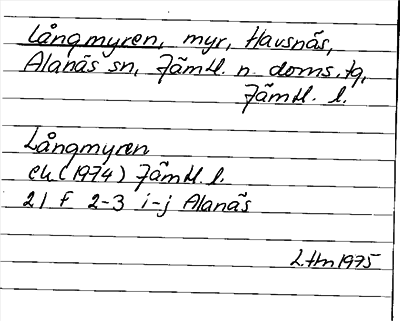 Långmyren, myr, Havsnäs,
Alanäs sn, Jämtl. n. doms. tg,
Jämtl. l.
Långmyren
ek (1974) Jämtl. l.
21 F 2-3 i-j Alanäs
1975